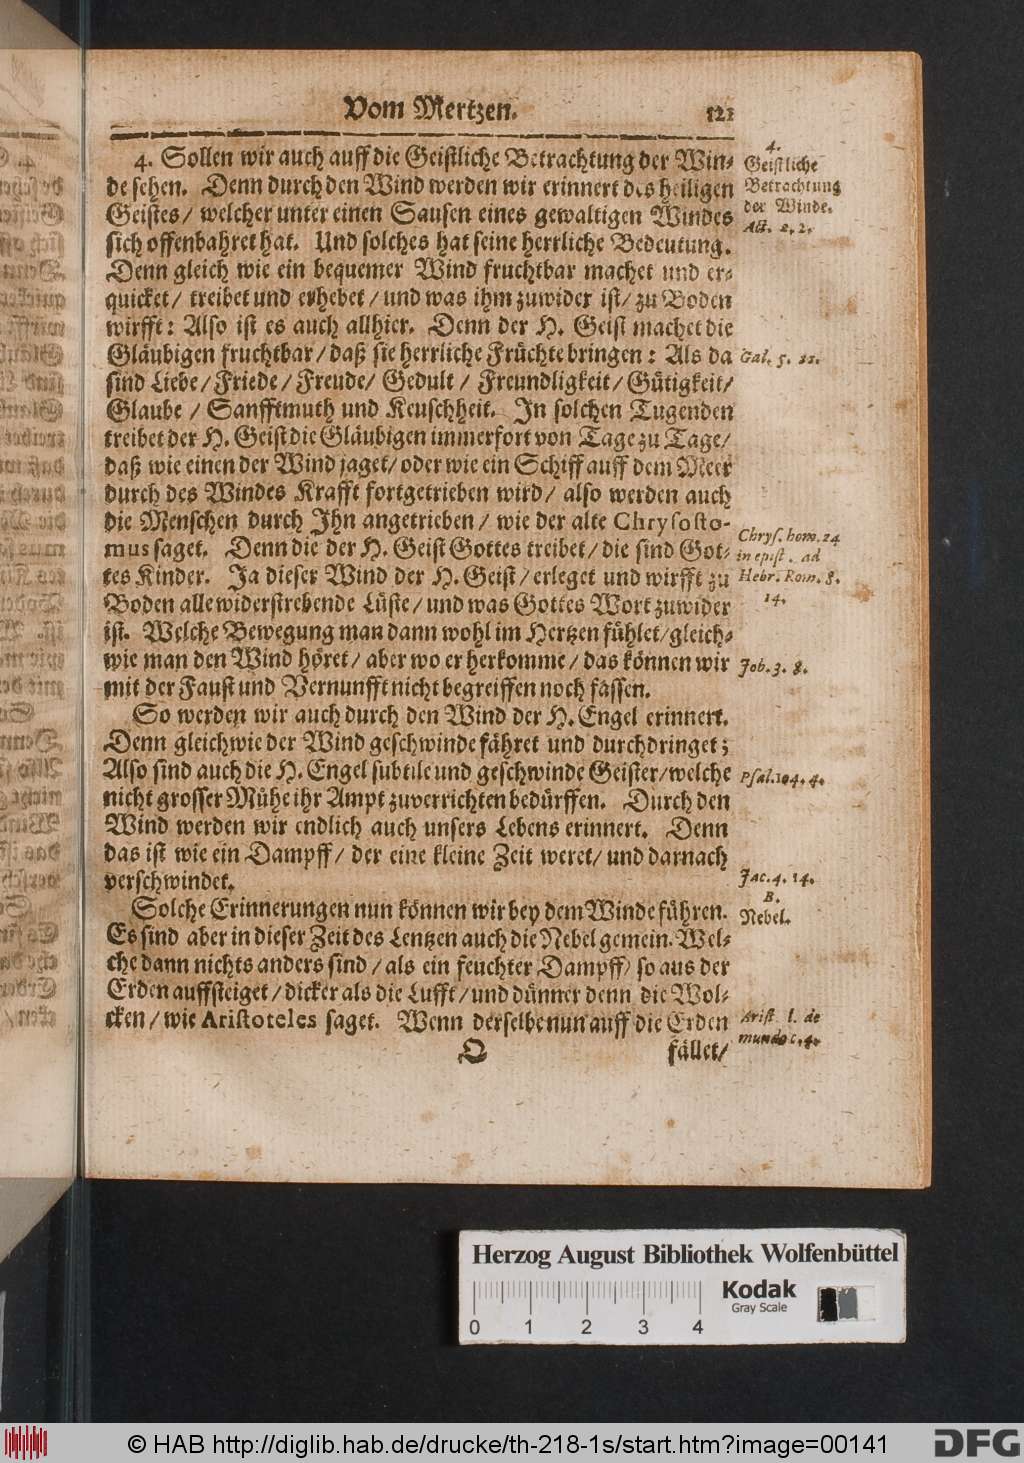 Vom Mertzen. 121
4. Sollen wir auch auff die Geistliche Betrachtung der Win-
de sehen. Denn durch den Wind werden wir erinnert des heiligen
Geistes/ welcher unter einen Sausen eines gewaltigen Windes
sich offenbahret hat. Und solches hat seine herrliche Bedeutung.
Denn gleich wie ein bequemer Wind fruchtbar machet und er-
quicket/ treibet und erhebet/ und was ihm zuwider ist/ zu Boden
wirfft: Also ist es auch allhier. Denn der H. Geist machet die
Gläubigen fruchtbar/ daß sie herrliche Früchte bringen: Als da
sind Liebe/ Friede/ Freude/ Gedult/ Freundligkeit/ Gütigkeit/
Glaube/ Sanfftmuth und Keuschheit. In solchen Tugenden
treibet der H. Geist die Gläubigen immerfort von Tage zu Tage/
daß wie einen der Wind jaget/ oder wie ein Schiff auff dem Meer
durch des Windes Krafft fortgetrieben wird/ also werden auch
die Menschen durch Ihn angetrieben/ wie der alte Chrysosto-
mus saget. Denn die der H. Geist Gottes treibet/ die sind Got-
tes Kinder. Ja dieser Wind der H. Geist/ erleget und wirfft zu
Boden alle widerstrebende Lüste/ und was Gottes Wort zuwider
ist. Welche Bewegung man dann wohl im Hertzen fühlet/ gleich-
wie man den Wind höret/ aber wo er herkomme/ das können wir
mit der Faust und Vernunfft nicht begreiffen noch fassen.
So werden wir auch durch den Wind der H. Engel erinnert.
Denn gleichwie der Wind geschwinde fähret und durchdringet;
Also sind auch die H. Engel subtile und geschwinde Geister/ welche
nicht grosser Mühe ihr Ampt zuverrichten bedürffen. Durch den
Wind werden wir endlich auch unsers Lebens erinnert. Denn
das ist wie ein Dampff/ der eine kleine Zeit weret/ und darnach
verschwindet.
Solche Erinnerungen nun können wir bey dem Winde führen.
Es sind aber in dieser Zeit des Lentzen auch die Nebel gemein. Wel-
che dann nichts anders sind/ als ein feuchter Dampff/ so aus der
Erden auffsteiget/ dicker als die Lufft/ und dünner denn die Wol-
cken/ wie Aristoteles saget. Wenn derselbe nun auff die Erden
Q fället/
4.
Geistliche
Betrachtung
der Winde.
Act. 2, 2.
Gal. 5. 22.
Chrys. hom. 24
in epist. ad
Hebr. Rom. 8.
14.
Joh. 3. 8.
Psal. 104. 4.
Jac. 4. 14.
B.
Nebel.
Arist. l. de
mundo c. 4.
Herzog August Bibliothek Wolfenbüttel
Kodak
Gray Scale
0 1 2 3 4
© HAB http://diglib.hab.de/drucke/th-218-1s/start.htm?image=00141
DFG